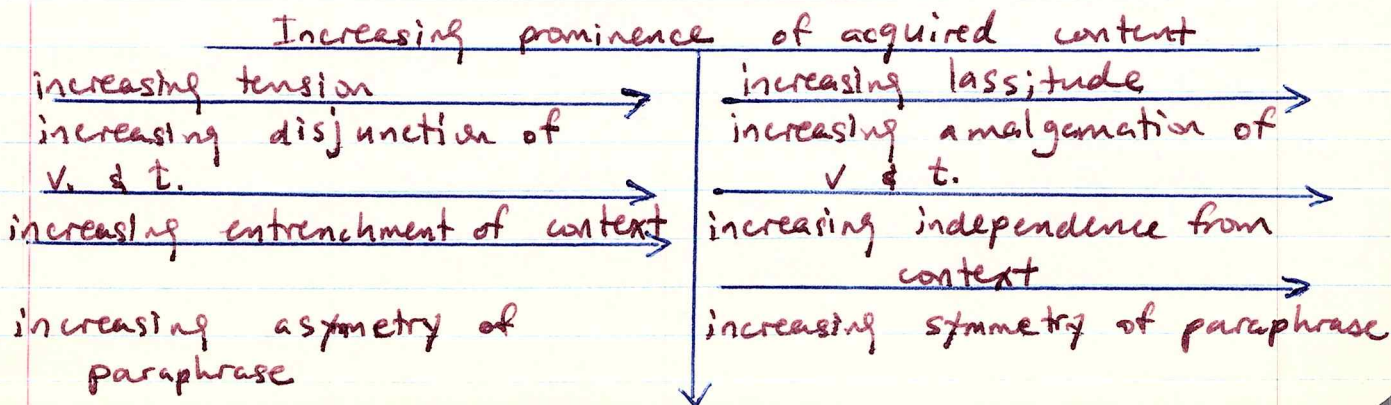 Increasing prominence of acquired content
increasing tension
increasing disjunction of
v. & t.
increasing entrenchment of context
increasing asymetry of
paraphrase
increasing lassitude
increasing amalgamation of
v & t.
increasing independence from
context
increasing symmetry of paraphrase